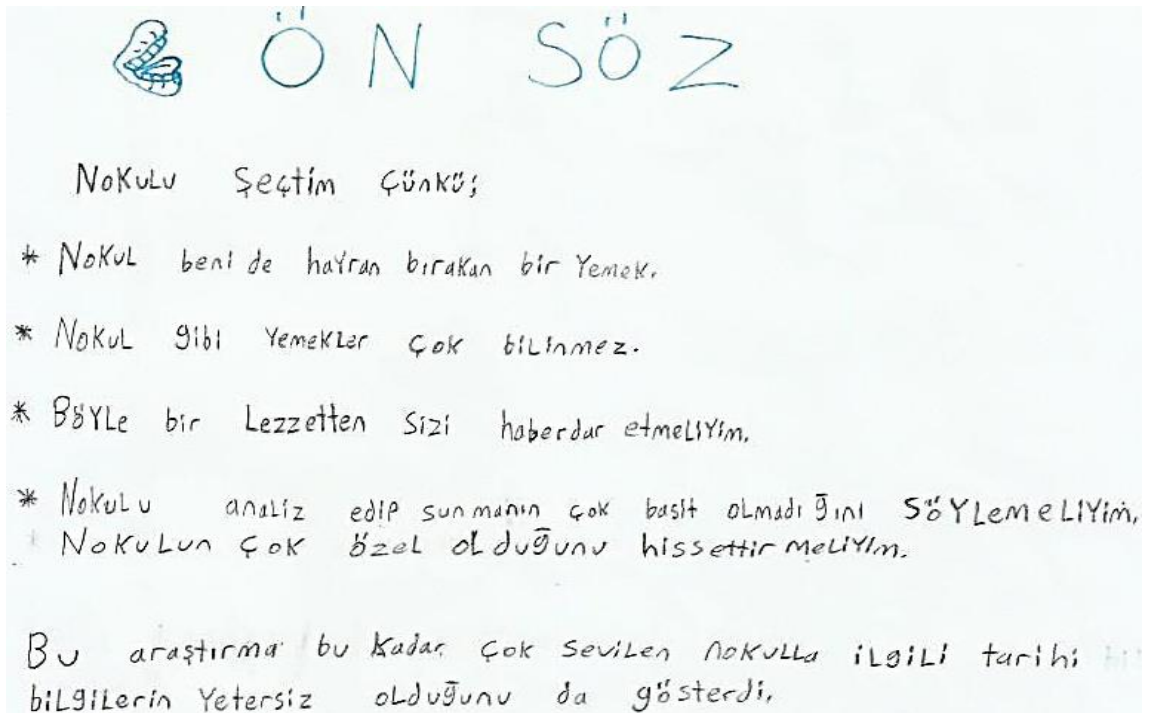 ÖN SÖZ
Nokulu Seçtim Çünkü;
* Nokul beni de hayran bırakan bir Yemek.
* Nokul gibi Yemekler çok bilinmez.
* Böyle bir Lezzetten sizi haberdar etmeliyim.
* Nokulu analiz edip sunmanın çok basit olmadığını SöyLemeliyim.
* Nokulun çok özel olduğunu hissettirmeliyim.
Bu araştırma bu kadar çok sevilen nokulla ilgili tarihi
bilgilerin Yetersiz olduğunu da gösterdi.